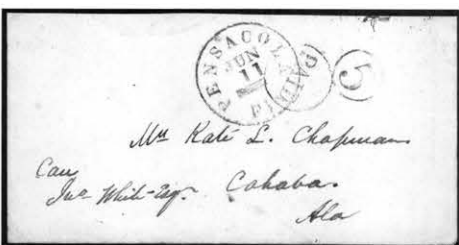 PENSACOLA Fla.
JUN
11
PAID
5
Mrs Kate L. Chapman
Care
Jno White Esq. Cahaba
Ala